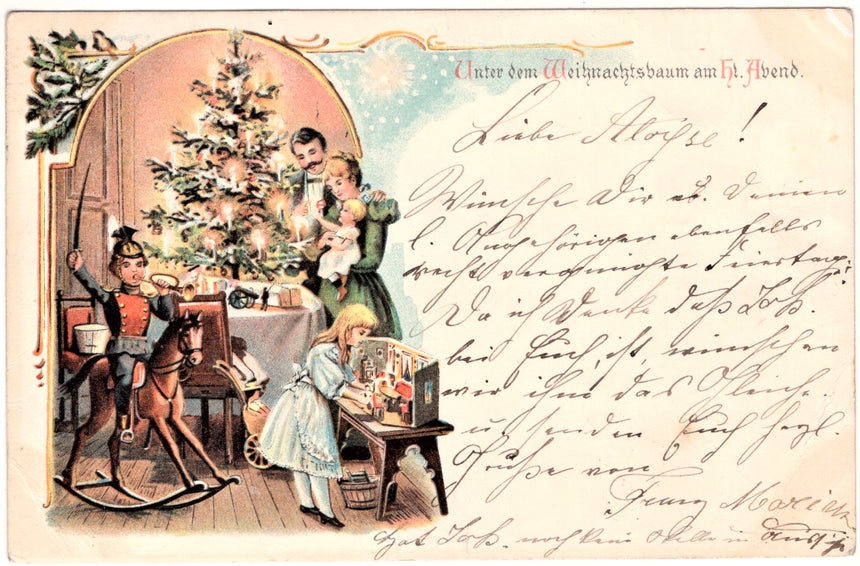 Unter dem Weihnachtsbaum am hl. Abend.
Liebe Aloise!
Wünsche Dir u. Deinen
l. Angehörigen ebenfalls
recht vergnügte Feiertage.
Da ich denke daß Joh.
bei Euch ist, wünschen
wir ihm das Gleiche
u. senden Euch herzl.
Grüße von
Franz
Hat Joh. noch kein Stelle in